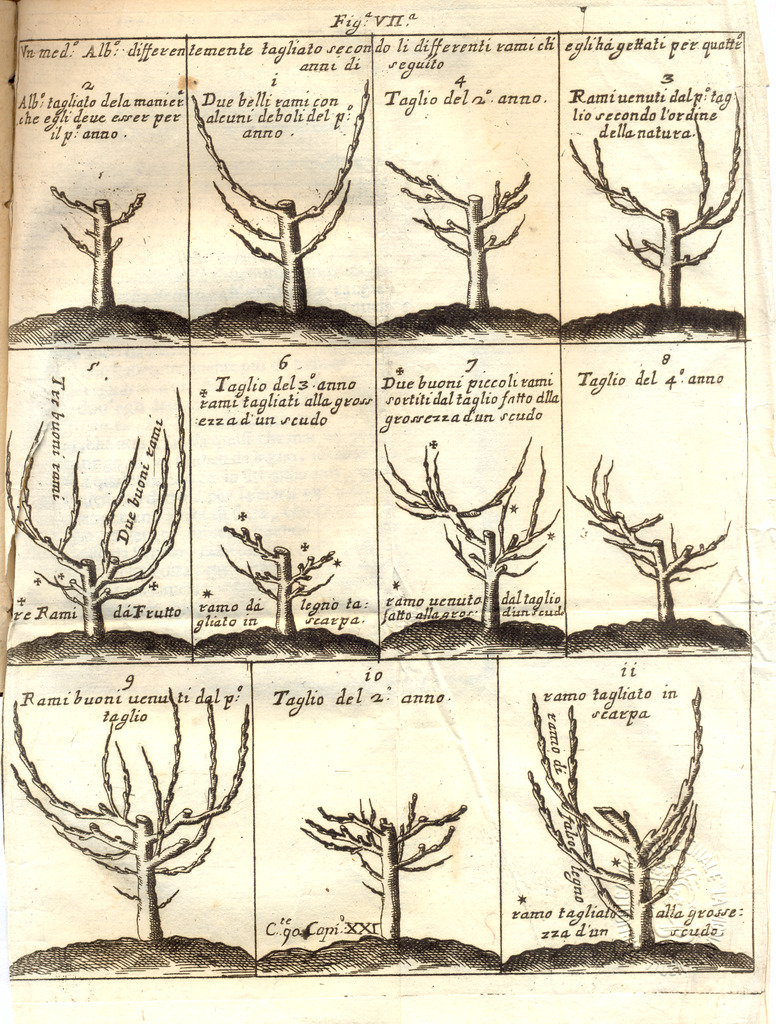 Fig.ª VII.ª
Un med.º Alb.º differentemente tagliato secondo li differenti rami ch egli há gettati per quattr
anni di seguito
2
Alb.º tagliato dela manier
che egli deve esser per
il p.º anno.
i
Due belli rami con
alcuni deboli del p.º
anno.
4
Taglio del 2.º anno.
3
Rami uenuti dal p.º tag
lio secondo l'ordine
della natura.
5
Tre buoni rami
Due buoni rami
re Rami dá Frutto
6
Taglio del 3.º anno
rami tagliati alla gross
ezza d'un scudo
ramo dá legno ta:
gliato in scarpa.
7
Due buoni piccoli rami
sortiti dal taglio fatto alla
grossezza d'un scudo
ramo uenuto dal taglio
fatto alla gros: d'un scudo
8
Taglio del 4.º anno
9
Rami buoni uenuti dal p.º
taglio
io
Taglio del 2.º anno.
C.te 90 Capi.º XXI
ii
ramo tagliato in
scarpa
ramo di falso legno
ramo tagliato alla grosse:
zza d'un scudo.